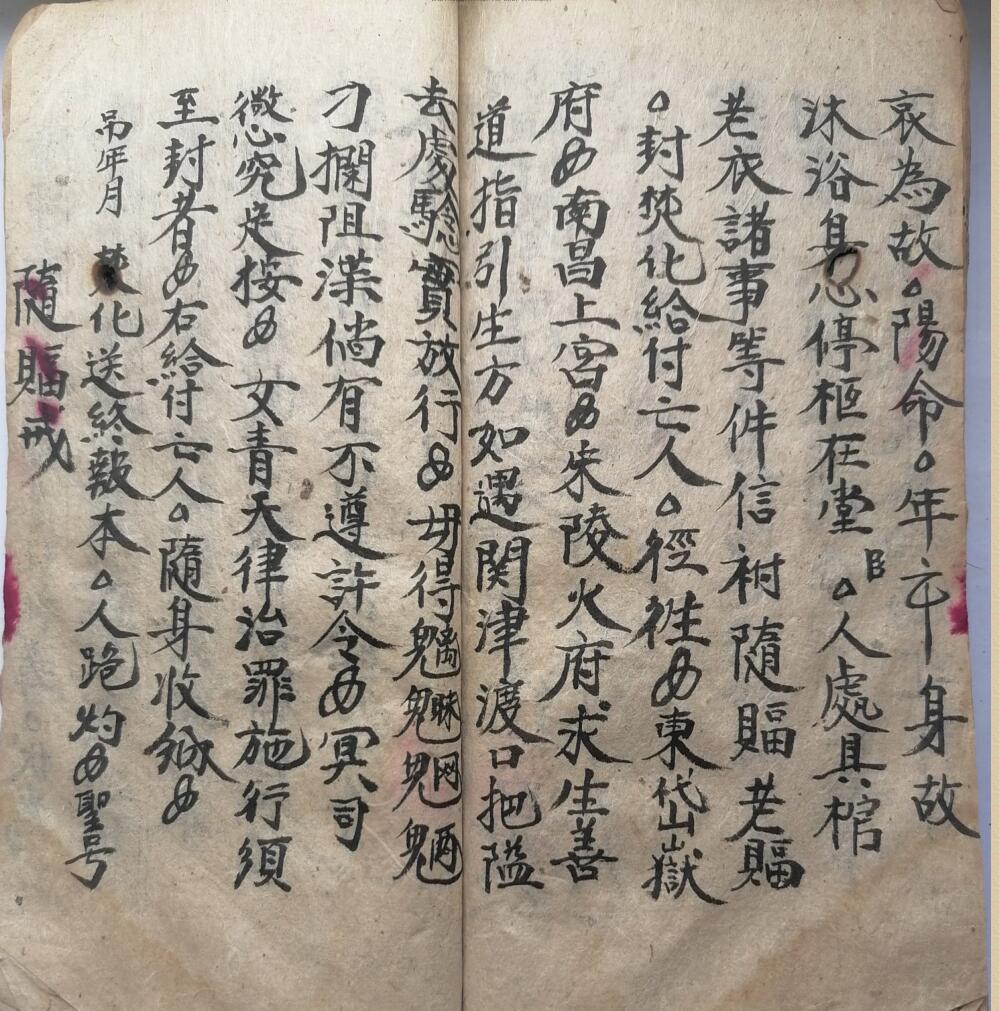 哀為故〇陽命〇年〇十身故
沐浴身心停柩在堂 〇人處具棺
老衣諸事等件信祔隨賵老賵
〇封焚化給付亡人〇徑徃 東岱嶽
府 南昌上宮 朱陵火府求生善
道指引生方如遇関津渡口把隘
去處驗實放行 毋得魑魅魍魎
刁攔阻滯倘有不遵許令 冥司
徵究定按 女青天律治罪施行須
至封者 右給付亡人〇隨身收執
吊年月 焚化送終報本〇人跪灼 聖号
隨賵戒